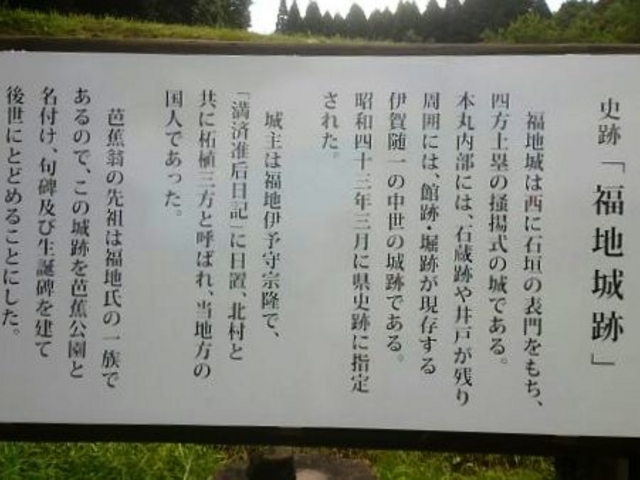 史跡「福地城跡」
福地城は西に石垣の表門をもち、
四方土塁の掻揚式の城である。
本丸内部には、石蔵跡や井戸が残り
周囲には、館跡・堀跡が現存する
伊賀随一の中世の城跡である。
昭和四十三年三月に県史跡に指定
された。
城主は福地伊予守宗隆で、
「満済准后日記」に日置、北村と
共に柘植三方と呼ばれ、当地方の
国人であった。
芭蕉翁の先祖は福地氏の一族で
あるので、この城跡を芭蕉公園と
名付け、句碑及び生誕碑を建て
後世にとどめることにした。